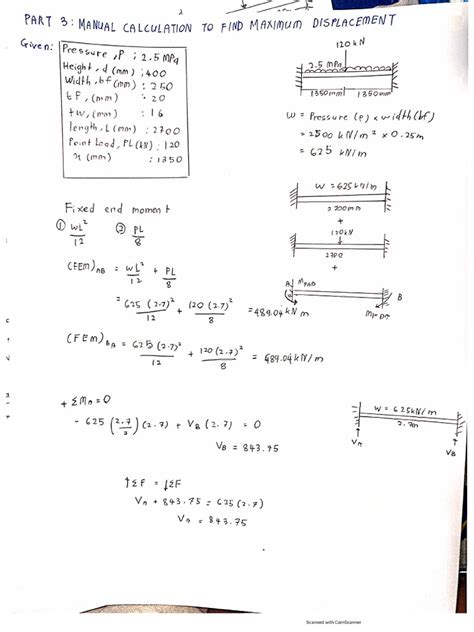 PART 3 : MANUAL CALCULATION TO FIND MAXIMUM DISPLACEMENT
Given:
Pressure, P : 2.5 MPa
Height, d (mm) : 400
Width, bf (mm) : 250
tf, (mm) : 20
tw, (mm) : 16
length, L (mm) : 2700
Point Load, PL (kN) : 120
x (mm) : 1350
120 kN
2.5 MPa
1350mm 1350mm
W = Pressure (P) x width (bf)
= 2500 kN/m² x 0.25m
= 625 kN/m
W = 625 kN/m
2700mm
+
120kN
2700
+
A B
Fixed end moment
① WL² / 12 ② PL / 8
(FEM)AB = WL² / 12 + PL / 8
= 625 (2.7)² / 12 + 120 (2.7)² / 8 = 489.04 kN/m
(FEM)BA = 625 (2.7)² / 12 + 120 (2.7)² / 8 = 489.04 kN/m
+ ΣMA = 0
- 625 (2.7 / 2) (2.7) + VB (2.7) = 0
VB = 843.75
W = 625kN/m
2.7m
VA VB
↑ΣF = ↓ΣF
VA + 843.75 = 625 (2.7)
VA = 843.75
Scanned with CamScanner